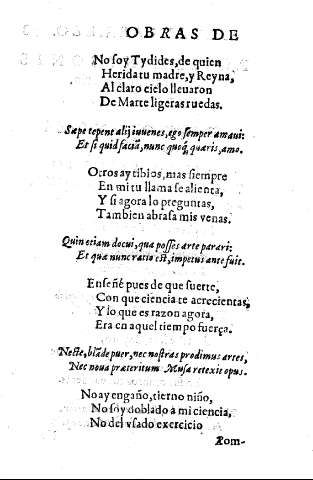 OBRAS DE
No soy Tydides, de quien
Herida tu madre, y Reyna,
Al claro cielo lleuaron
De Marte ligeras ruedas.
Sæpe tepent alij iuuenes, ego semper amaui:
Et si quid faciã, nunc quoq́, quæris, amo.
Otros ay tibios, mas siempre
En mi tu llama se alienta,
Y si agora lo preguntas,
Tambien abrasa mis venas.
Quin etiam docui, qua posses arte parari:
Et quæ nunc ratio est, impetus ante fuit.
Enseñé pues de que suerte,
Con que ciencia te acrecientas,
Y lo que es razon agora,
Era en aquel tiempo fuerça.
Nec te, blãde puer, nec nostras prodimus artes,
Nec noua præteritum Musa retexit opus.
No ay engaño, tierno niño,
No soy doblado a mi ciencia,
No del vsado exercicio
Rom-